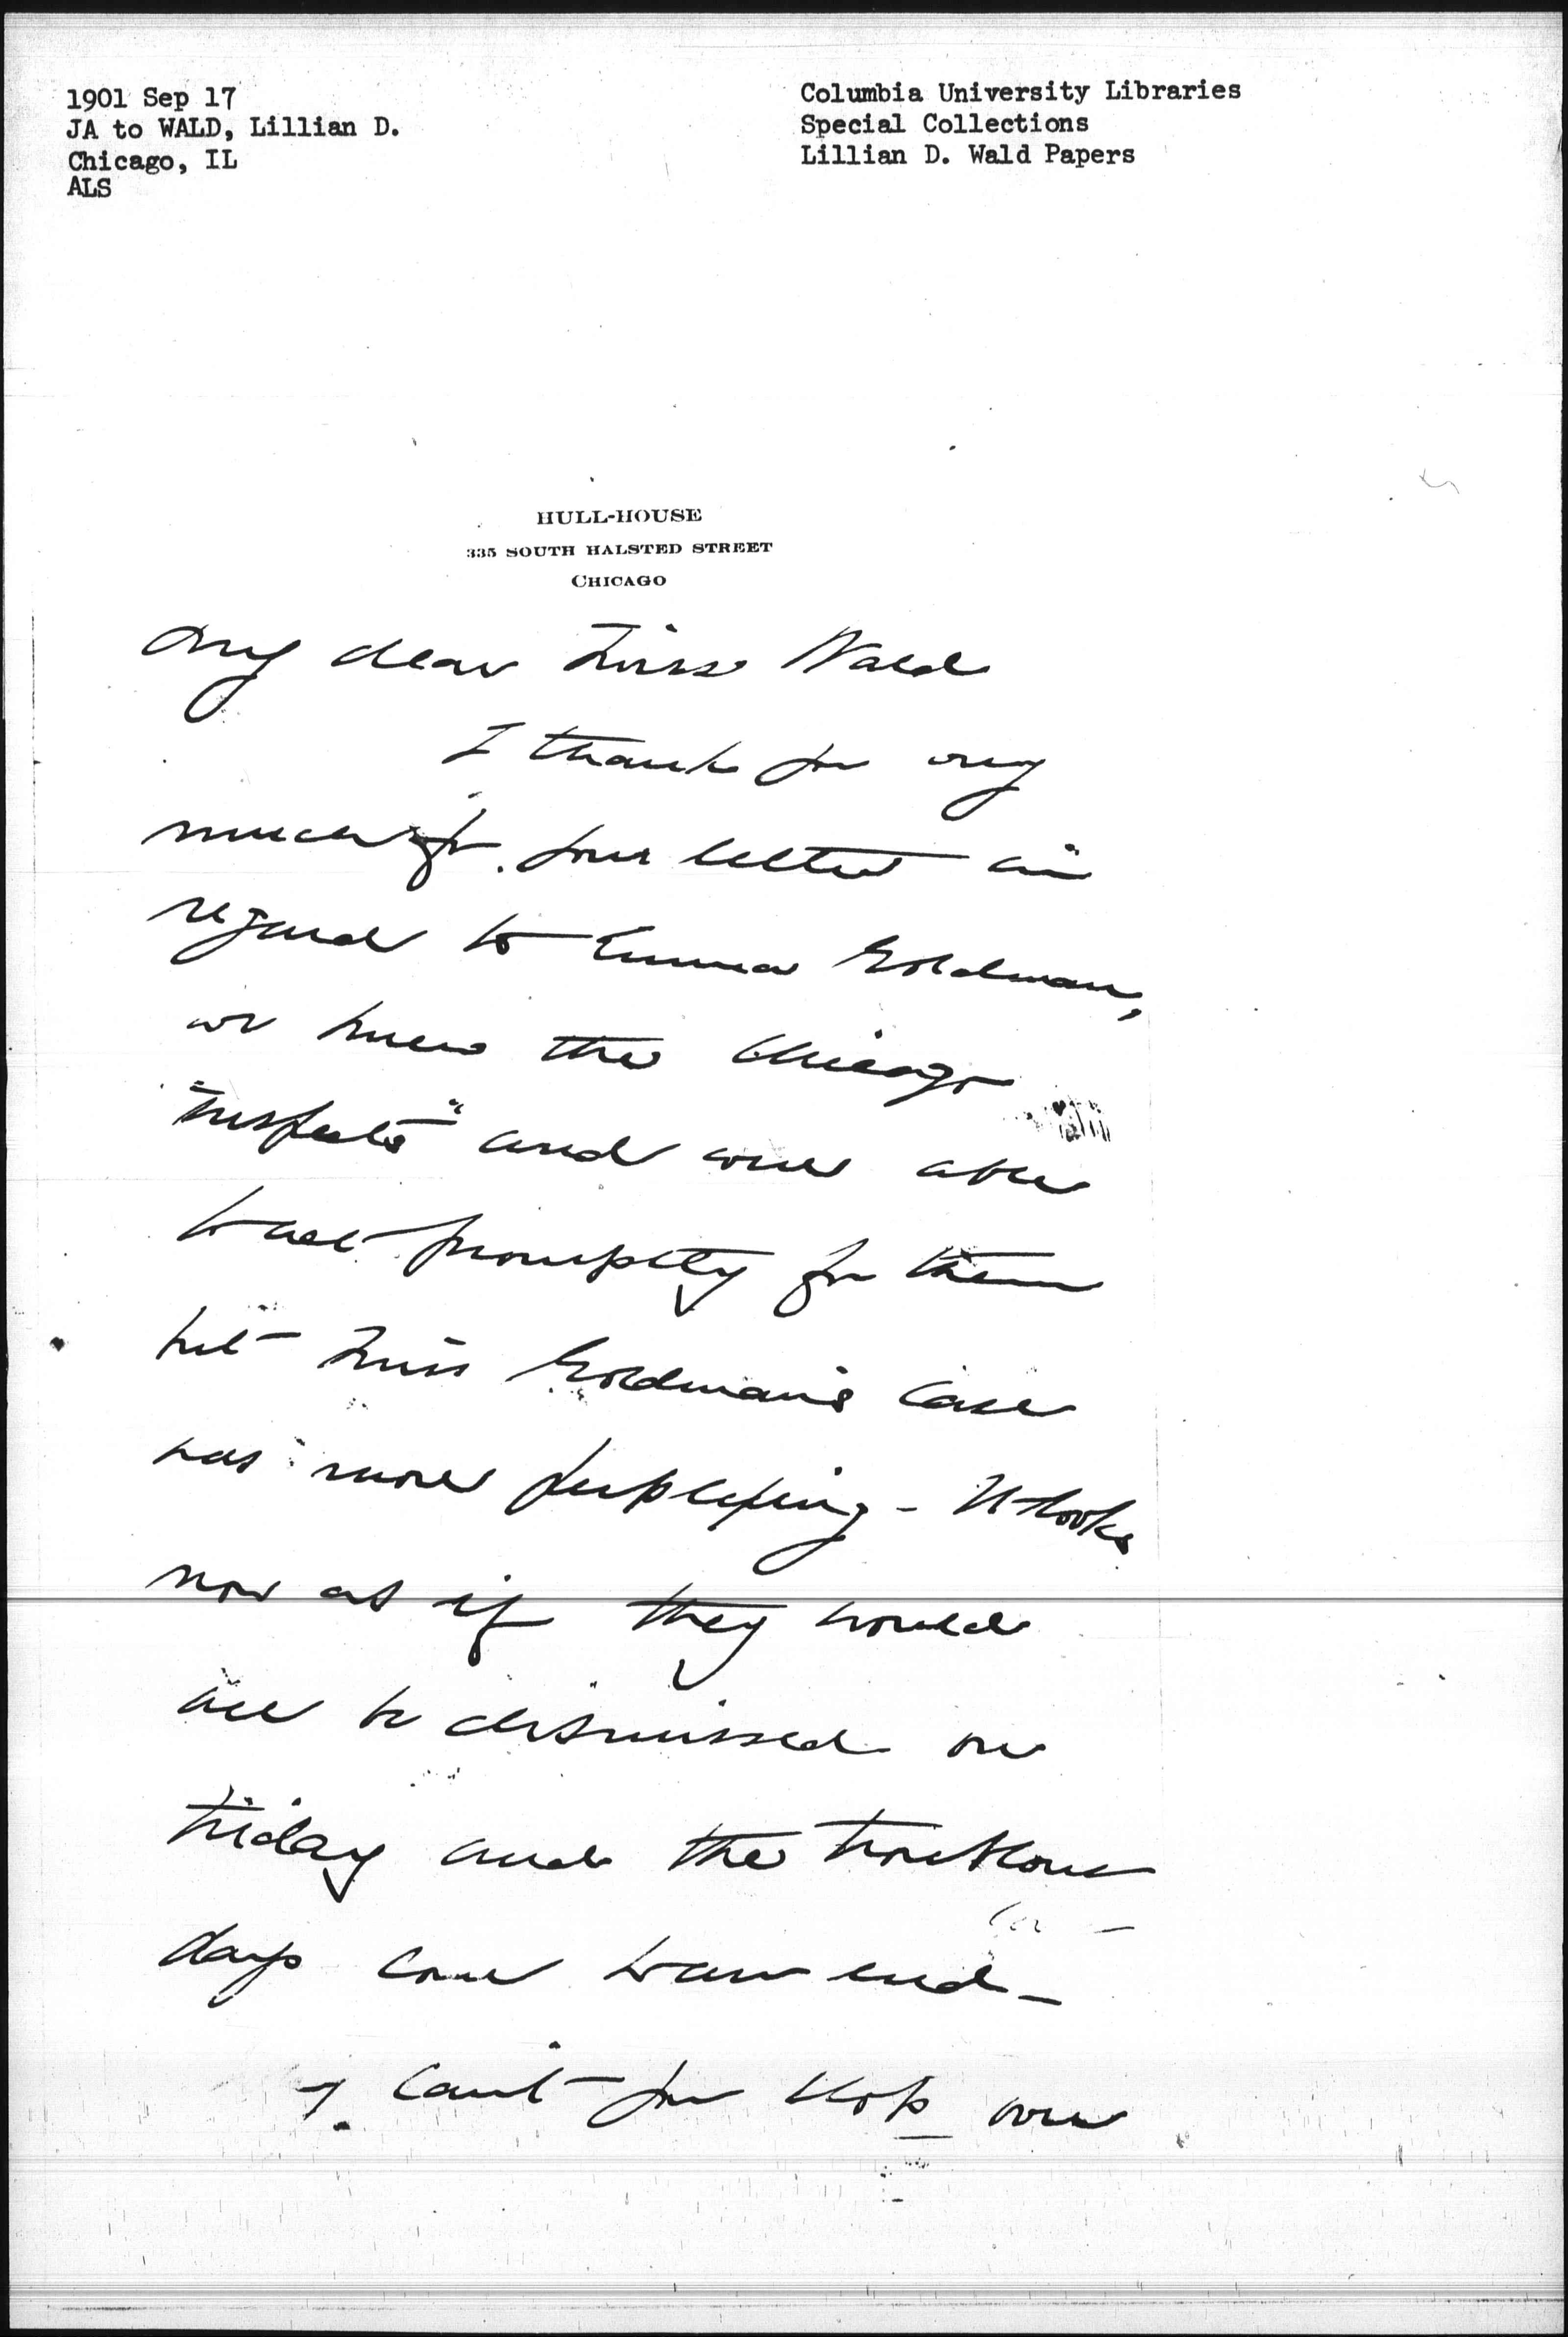 1901 Sep 17
JA to WALD, Lillian D.
Chicago, IL
ALS
Columbia University Libraries
Special Collections
Lillian D. Wald Papers
HULL-HOUSE
335 SOUTH HALSTED STREET
CHICAGO
My dear Miss Wald
I thank you very
much for your letter in
regard to Emma Goldman,
we knew the Chicago
"suspects" and were able
to act promptly for them
but Miss Goldman's case
was more perplexing - It looks
now as if they would
all be dismissed on
Friday and the troublous
days come to an end -
Can't you stop over